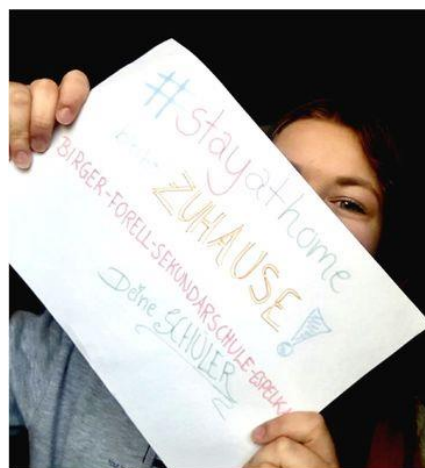 #stayathome
ZUHAUSE!
BIRGER-FORELL-SEKUNDARSCHULE-ESPELKA
Deine SCHÜLER